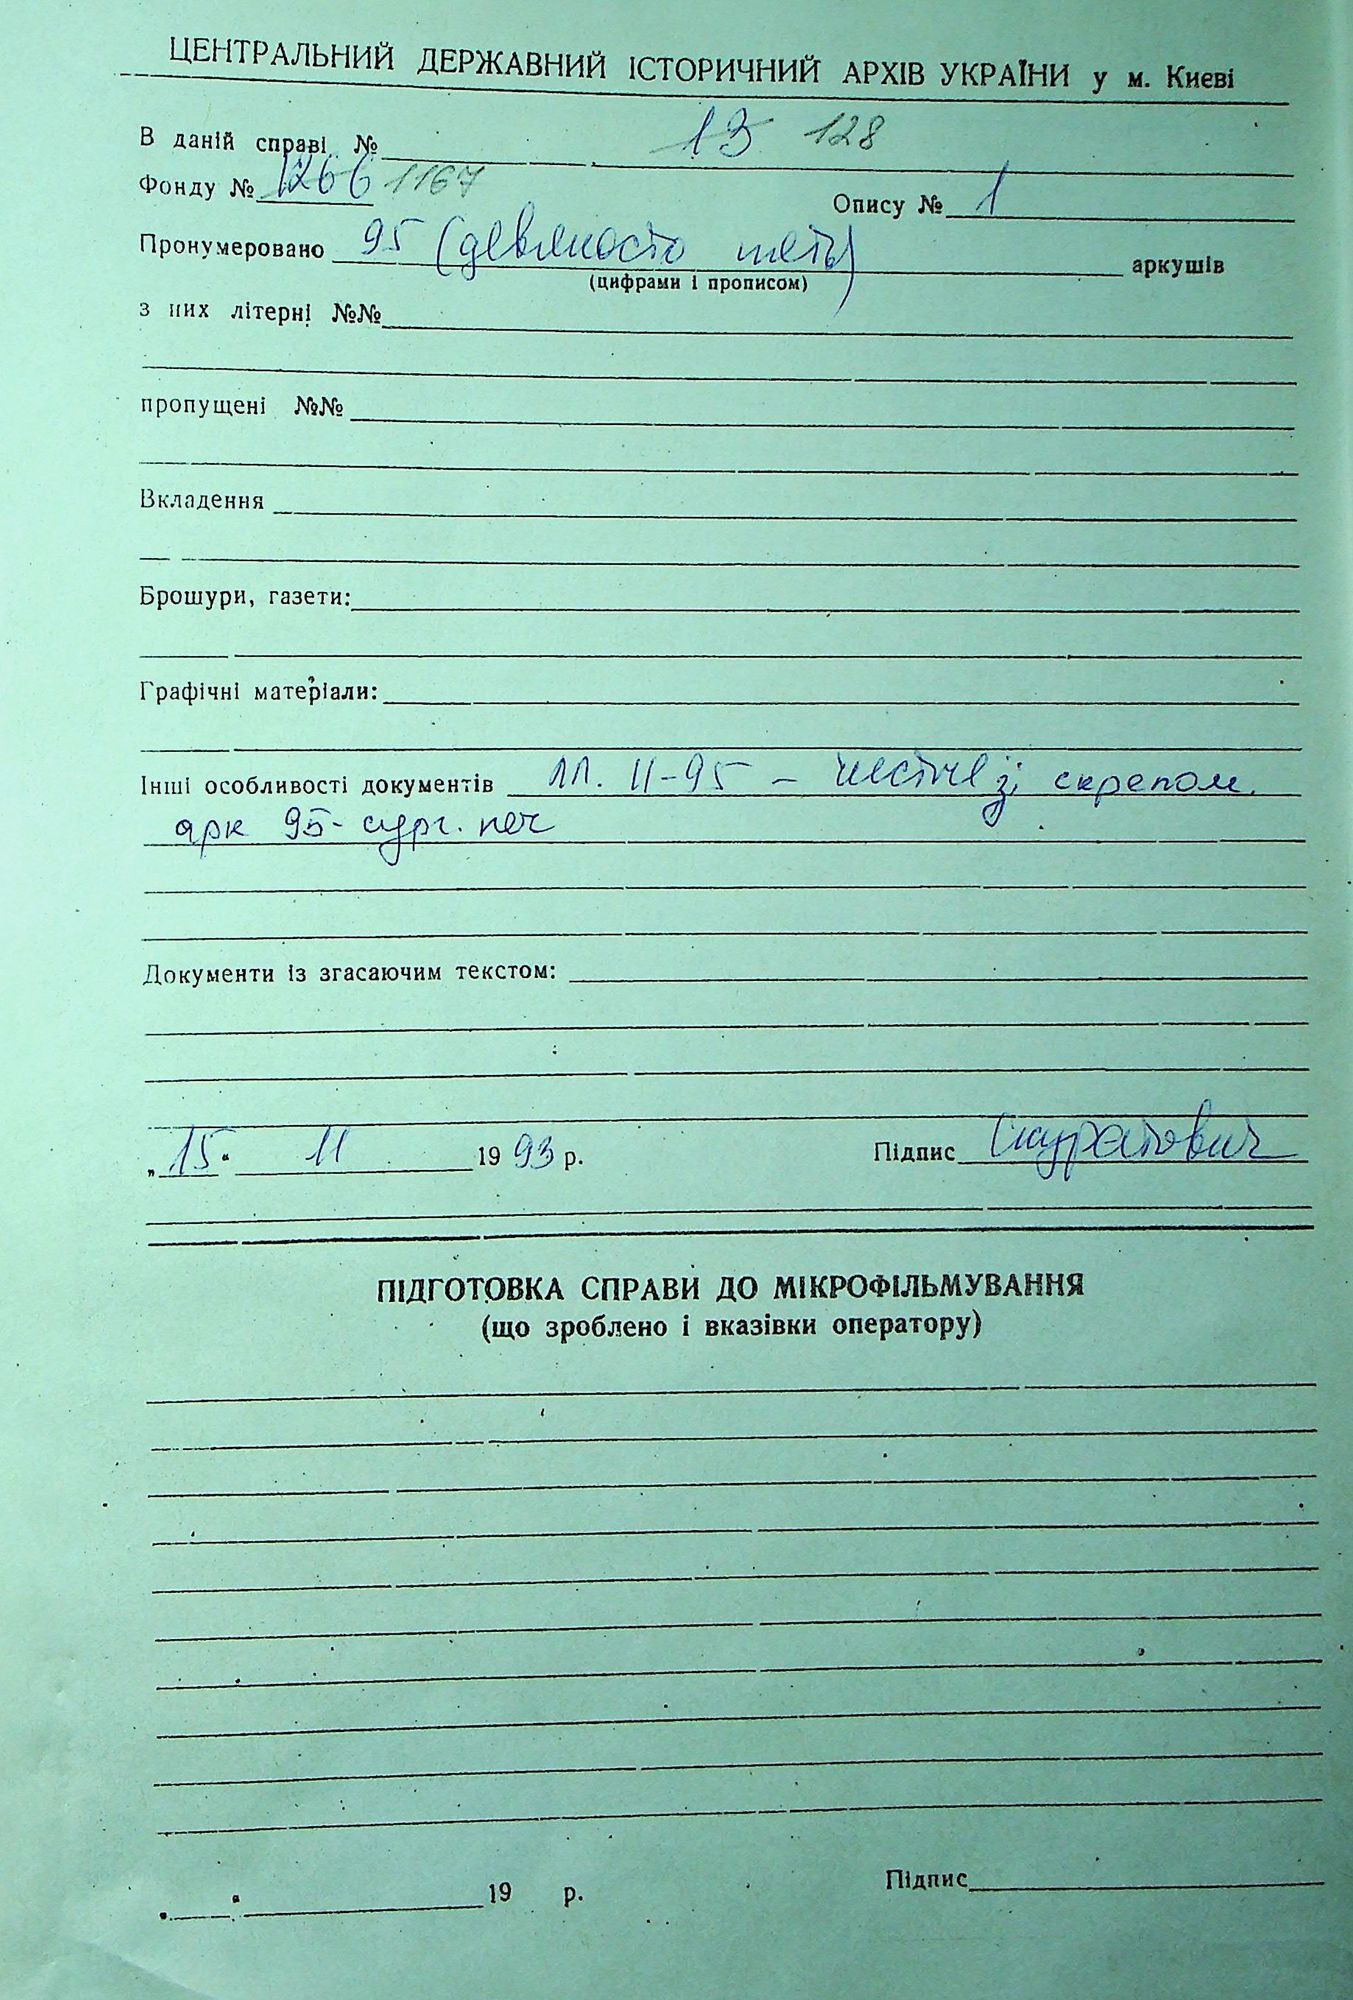 ЦЕНТРАЛЬНИЙ ДЕРЖАВНИЙ ІСТОРИЧНИЙ АРХІВ УКРАЇНИ у м. Києві
В даній справі № 13 128
Фонду № 1266 1167 Опису № 1
Пронумеровано 95 (девяносто пять) аркушів
(цифрами і прописом)
з них літерні №№
пропущені №№
Вкладення
Брошури, газети:
Графічні матеріали:
Інші особливості документів 11-95 – зі скрепом.
арк 95- сург. печ
Документи із згасаючим текстом:
„15“ 11 1993 р. Підпис Скуратович
ПІДГОТОВКА СПРАВИ ДО МІКРОФІЛЬМУВАННЯ
(що зроблено і вказівки оператору)
19 р. Підпис